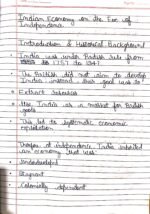 Indian Economy on the Eve of
Independence
Introduction & Historical Background
India was under British rule from
1757 to 1947.
The British did not aim to develop
India instead their goal was to
Extract resources
Use India as a market for British
goods
This led to systematic economic
exploitation
at independence India inherited
an economy that was
Underdeveloped
Stagnant
Colonially dependent